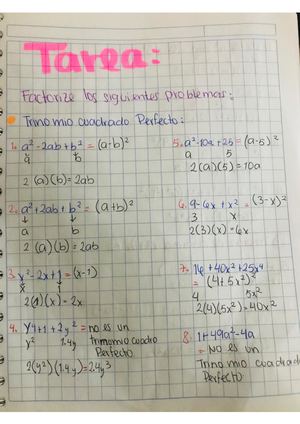 Tarea:
Factorize los siguientes problemas:
Trinomio cuadrado Perfecto:
1. a² - 2ab + b² = (a-b)²
a b
2 (a)(b) = 2ab
2. a² + 2ab + b² = (a+b)²
a b
2 (a)(b) = 2ab
3. x² - 2x + 1 = (x-1)
x 1
2(1)(x) = 2x
4. y4 + 1 + 2y² = no es un
y² 1.4y trinomio cuadro
Perfecto
2(y²)(1.4y) = 2.4y³
5. a² - 10a + 25 = (a-5)²
a 5
2(a)(5) = 10a
6. 9 - 6x + x² = (3-x)²
3 x
2(3)(x) = 6x
7. 16 + 40x² + 25x⁴
= (4+5x²)²
4 5x²
2(4)(5x²) = 40x²
8. 1 + 49a² - 4a
= No es un
Trinomio cuadrado
Perfecto